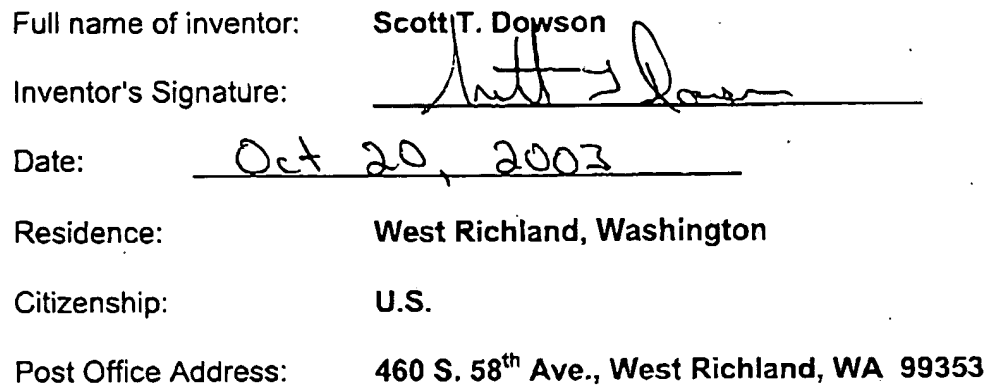 Full name of inventor: Scott T. Dowson
Inventor's Signature: Scott T Dowson
Date: Oct 20, 2003
Residence: West Richland, Washington
Citizenship: U.S.
Post Office Address: 460 S. 58th Ave., West Richland, WA 99353